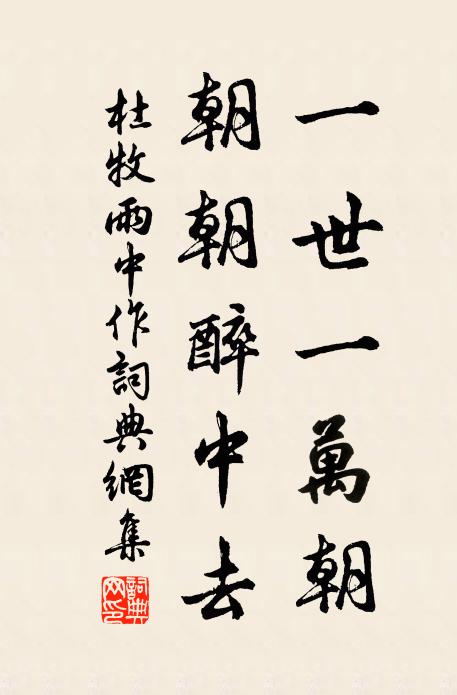 一世一萬朝
朝朝醉中去
杜牧雨中作詞典網集
詞典網印